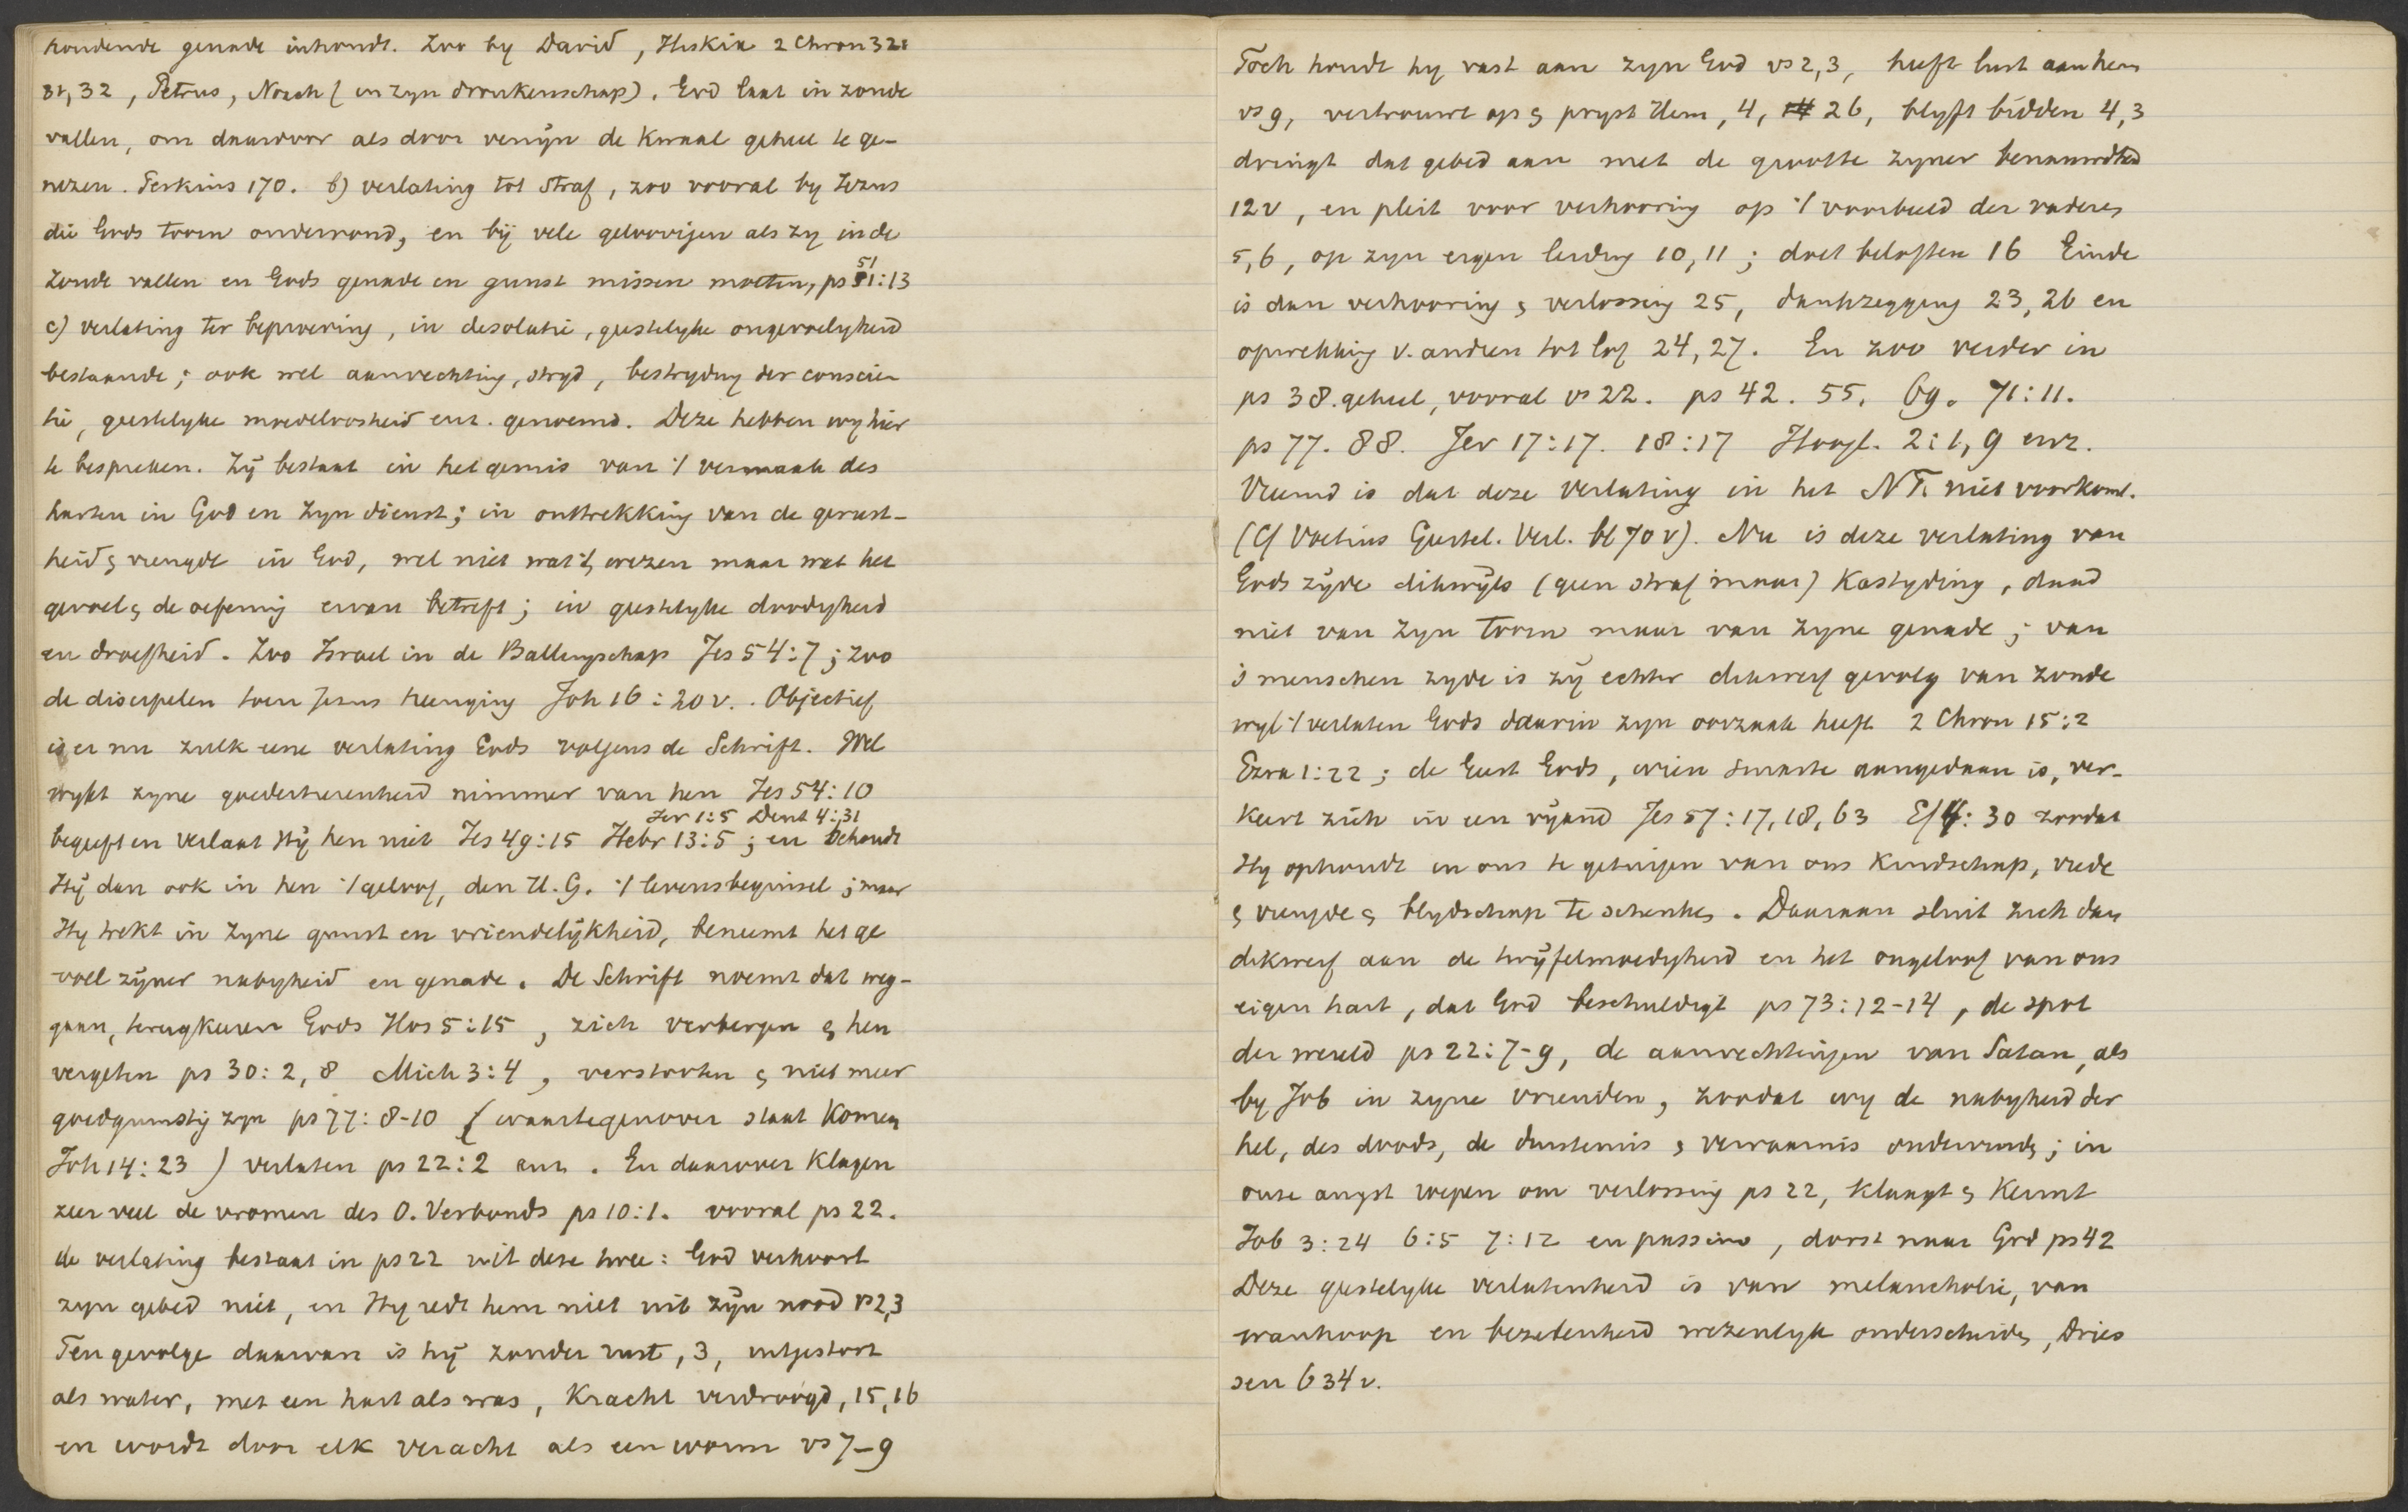 houdende genade inhoudt. Zoo by David, Hiskia 2 Chron 32:
31, 32, Petrus, Noach (in zyn dronkenschap). God laat in zonde
vallen, om daardoor als door venijn de kwaal geheel te ge-
nezen. Perkins 170. b) verlating tot straf, zoo vooral by Jezus
die Gods toorn ondervond, en bij vele geloovigen als zy in de
zonde vallen en Gods genade en gunst missen moeten, ps 51:13
c) verlating ter beproeving, in desolatie, geestelyke ongevoeligheid
bestaande; ook wel aanvechting, stryd, bestryding der conscien
tie, geestelyke moedeloosheid enz. genoemd. Deze hebben wy hier
te bespreken. Zij bestaat in het gemis van 't vermaak des
harten in God en zyn dienst; in onttrekking van de gerust-
heid & vreugde in God, wel niet wat 't wezen maar wat het
gevoel & de oefening ervan betreft; in geestelyke doodigheid
en droefheid. Zoo Israel in de Ballingschap Jes 54:7; zoo
de discipelen toen Jezus heenging Joh 16:20v. Objectief
is er nu zulk eene verlating Gods volgens de Schrift. Wel
wykt zyne goedertierenheid nimmer van hen Jes 54:10
Jer 1:5 Deut 4:31
begeeft en verlaat Hij hen niet Jes 49:15 Hebr 13:5; en behoudt
Hij dan ook in hen 't geloof, den H.G. 't levensbeginsel; maar
Hy trekt in zyne gunst en vriendelijkheid, beneemt het ge
voel zijner nabyheid en genade. De Schrift noemt dat weg-
gaan, terugkeeren Gods Hos 5:15, zich verbergen & hen
vergeten ps 30:2,8 Mich 3:4, verstooten & niet meer
goedgunstig zyn ps 77:8-10 (waartegenover staat komen
Joh 14:23) verlaten ps 22:2 enz. En daarover klagen
zeer veel de vromen des O. Verbonds ps 10:1. vooral ps 22.
de verlating bestaat in ps 22 uit deze twee: God verhoort
zyn gebed niet, en Hy redt hem niet uit zijn nood vs 2,3
Ten gevolge daarvan is hij zonder rust, 3, uitgestort
als water, met een hart als was, kracht verdroogd, 15,16
en wordt door elk veracht als een worm vs 7-9
Toch houdt hy vast aan zyn God vs 2,3, heeft lust aan hem
vs 9, vertrouwt op & pryst Hem, 4, 26, blyft bidden 4,3
dringt dat gebed aan met de grootte zyner benauwdheid
12v, en pleit voor verhooring op 't voorbeeld der vaderen
5,6, op zyn eigen leiding 10,11; doet beloften 16 Einde
is dan verhooring & verlossing 25, dankzegging 23,26 en
opwekking v. andren tot lof 24,27. En zoo verder in
ps 38. geheel, vooral vs 22. ps 42. 55. 69. 71:11.
ps 77. 88. Jer 17:17. 18:17 Hoogl. 2:1,9 enz.
Vreemd is dat deze verlating in het NT. niet voorkomt.
(Cf Voetius Geestel. Verl. bl 70v). Nu is deze verlating van
Gods zijde dikwijls (geen straf maar) kastyding, daad
niet van zyn toorn maar van zyne genade; van
's menschen zyde is zij echter dikwerf gevolg van zonde
wyl 't verlaten Gods daarin zyn oorzaak heeft 2 Chron 15:2
Ezra 1:22; de Geest Gods, wien smarte aangedaan is, ver-
keert zich in een vijand Jes 57:17,18, 63 Ef 4:30 zoodat
Hy ophoudt in ons te getuigen van ons kindschap, vrede
& vreugde & blydschap te schenken. Daaraan sluit zich dan
dikwerf aan de twijfelmoedigheid en het ongeloof van ons
eigen hart, dat God beschuldigt ps 73:12-14, de spot
der wereld ps 22:7-9, de aanvechtingen van Satan, als
by Job in zyne vrienden, zoodat wy de nabyheid der
hel, des doods, de duisternis & verwarnis ondervinden; in
onze angst roepen om verlossing ps 22, klaagt & kermt
Job 3:24 6:5 7:12 en passim, dorst naar God ps 42
Deze geestelyke verlatenheid is van melancholie, van
wanhoop en bezetenheid wezenlyk onderscheiden, Dries
sen 634v.